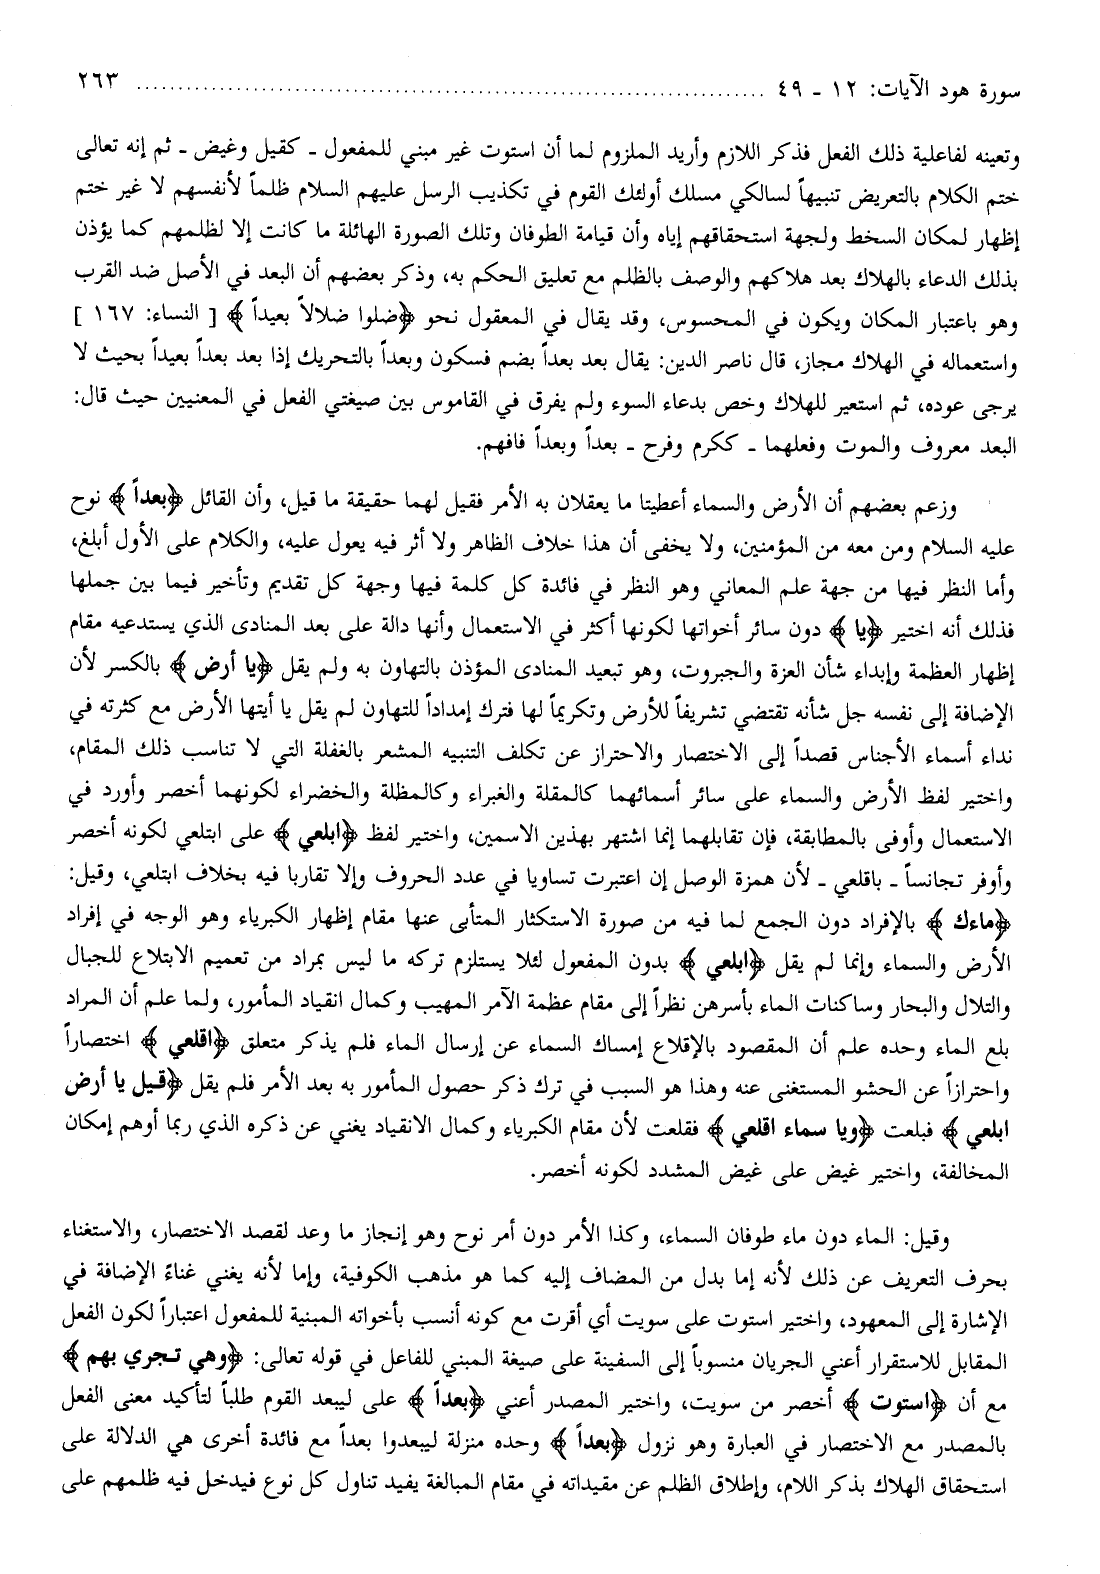 سورة هود الآيات: ١٢ ـ ٤٩ ........................................................................ ٢٦٣
وتعينه لفاعلية ذلك الفعل فذكر اللازم وأريد الملزوم لما أن استوت غير مبني للمفعول ـ كقيل وغيض ـ ثم إنه تعالى
ختم الكلام بالتعريض تنبيهاً لسالكي مسلك أولئك القوم في تكذيب الرسل عليهم السلام ظلماً لأنفسهم لا غير ختم
إظهار لمكان السخط ولجهة استحقاقهم إياه وأن قيامة الطوفان وتلك الصورة الهائلة ما كانت إلا لظلمهم كما يؤذن
بذلك الدعاء بالهلاك بعد هلاكهم والوصف بالظلم مع تعليق الحكم به، وذكر بعضهم أن البعد في الأصل ضد القرب
وهو باعتبار المكان ويكون في المحسوس، وقد يقال في المعقول نحو ﴿ضلوا ضلالاً بعيداً﴾ [ النساء: ١٦٧ ]
واستعماله في الهلاك مجاز، قال ناصر الدين: يقال بعد بعداً بضم فسكون وبعداً بالتحريك إذا بعد بعداً بعيداً بحيث لا
يرجى عوده، ثم استعير للهلاك وخص بدعاء السوء ولم يفرق في القاموس بين صيغتي الفعل في المعنيين حيث قال:
البعد معروف والموت وفعلهما ـ ككرم وفرح ـ بعداً وبعداً فافهم.
وزعم بعضهم أن الأرض والسماء أعطيتا ما يعقلان به الأمر فقيل لهما حقيقة ما قيل، وأن القائل ﴿بعداً﴾ نوح
عليه السلام ومن معه من المؤمنين، ولا يخفى أن هذا خلاف الظاهر ولا أثر فيه يعول عليه، والكلام على الأول أبلغ،
وأما النظر فيها من جهة علم المعاني وهو النظر في فائدة كل كلمة فيها وجهة كل تقديم وتأخير فيما بين جملها
فذلك أنه اختير ﴿يا﴾ دون سائر أخواتها لكونها أكثر في الاستعمال وأنها دالة على بعد المنادى الذي يستدعيه مقام
إظهار العظمة وإبداء شأن العزة والجبروت، وهو تبعيد المنادى المؤذن بالتهاون به ولم يقل ﴿يا أرض﴾ بالكسر لأن
الإضافة إلى نفسه جل شأنه تقتضي تشريفاً للأرض وتكريماً لها فترك إمداداً للتهاون لم يقل يا أيتها الأرض مع كثرته في
نداء أسماء الأجناس قصداً إلى الاختصار والاحتراز عن تكلف التنبيه المشعر بالغفلة التي لا تناسب ذلك المقام،
واختير لفظ الأرض والسماء على سائر أسمائهما كالمقلة والغبراء وكالمظلة والخضراء لكونهما أخصر وأورد في
الاستعمال وأوفى بالمطابقة، فإن تقابلهما إنما اشتهر بهذين الاسمين، واختير لفظ ﴿ابلعي﴾ على ابتلعي لكونه أخصر
وأوفر تجانساً ـ باقلعي ـ لأن همزة الوصل إن اعتبرت تساويا في عدد الحروف وإلا تقاربا فيه بخلاف ابتلعي، وقيل:
﴿ماءك﴾ بالإفراد دون الجمع لما فيه من صورة الاستكثار المتأبى عنها مقام إظهار الكبرياء وهو الوجه في إفراد
الأرض والسماء وإنما لم يقل ﴿ابلعي﴾ بدون المفعول لئلا يستلزم تركه ما ليس بمراد من تعميم الابتلاع للجبال
والتلال والبحار وساكنات الماء بأسرهن نظراً إلى مقام عظمة الآمر المهيب وكمال انقياد المأمور، ولما علم أن المراد
بلع الماء وحده علم أن المقصود بالإقلاع إمساك السماء عن إرسال الماء فلم يذكر متعلق ﴿اقلعي﴾ اختصاراً
واحترازاً عن الحشو المستغنى عنه وهذا هو السبب في ترك ذكر حصول المأمور به بعد الأمر فلم يقل ﴿قيل يا أرض
ابلعي﴾ فبلعت ﴿ويا سماء اقلعي﴾ فقلعت لأن مقام الكبرياء وكمال الانقياد يغني عن ذكره الذي ربما أوهم إمكان
المخالفة، واختير غيض على غيض المشدد لكونه أخصر.
وقيل: الماء دون ماء طوفان السماء، وكذا الأمر دون أمر نوح وهو إنجاز ما وعد لقصد الاختصار، والاستغناء
بحرف التعريف عن ذلك لأنه إما بدل من المضاف إليه كما هو مذهب الكوفية، وإما لأنه يغني غناءً الإضافة في
الإشارة إلى المعهود، واختير استوت على سويت أي أقرت مع كونه أنسب بأخواته المبنية للمفعول اعتباراً لكون الفعل
المقابل للاستقرار أعني الجريان منسوباً إلى السفينة على صيغة المبني للفاعل في قوله تعالى: ﴿وهي تجري بهم﴾
مع أن ﴿استوت﴾ أخصر من سويت، واختير المصدر أعني ﴿بعداً﴾ على ليبعد القوم طلباً لتأكيد معنى الفعل
بالمصدر مع الاختصار في العبارة وهو نزول ﴿بعداً﴾ وحده منزلة ليبعدوا بعداً مع فائدة أخرى هي الدلالة على
استحقاق الهلاك بذكر اللام، وإطلاق الظلم عن مقيداته في مقام المبالغة يفيد تناول كل نوع فيدخل فيه ظلمهم على